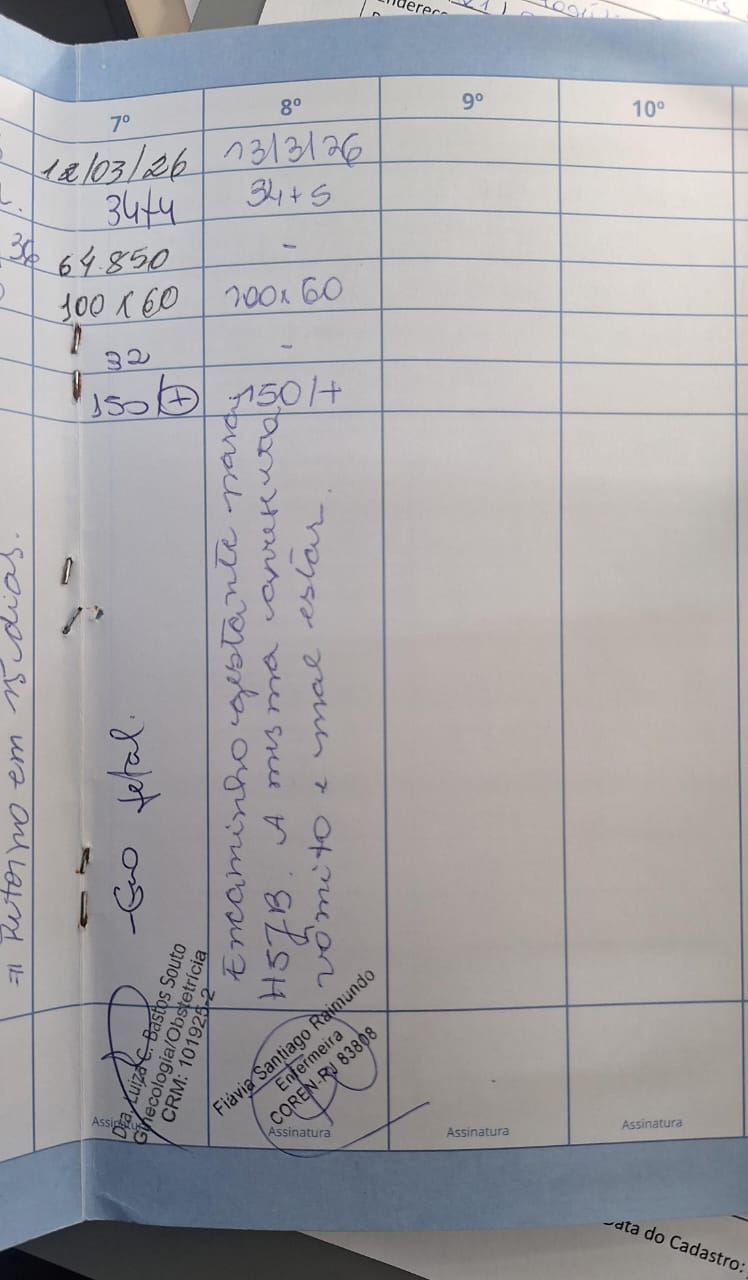 Endereç
7º 8º 9º 10º
12/03/26 13/3/26
34+4 34+5
36 64.850 -
100 x 60 100 x 60
32 -
150/+ 150/+
⇒ Retorno em 15 dias.
- Eco fetal.
Encaminho gestante para
HSJB. A mesma apresenta
vômito e mal estar.
Dra. Luiza C. Bastos Souto
Ginecologia/Obstetrícia
CRM: 101925-2
Flávia Santiago Raimundo
Enfermeira
COREN-RJ 83808
Assinatura Assinatura Assinatura Assinatura
Data do Cadastro: